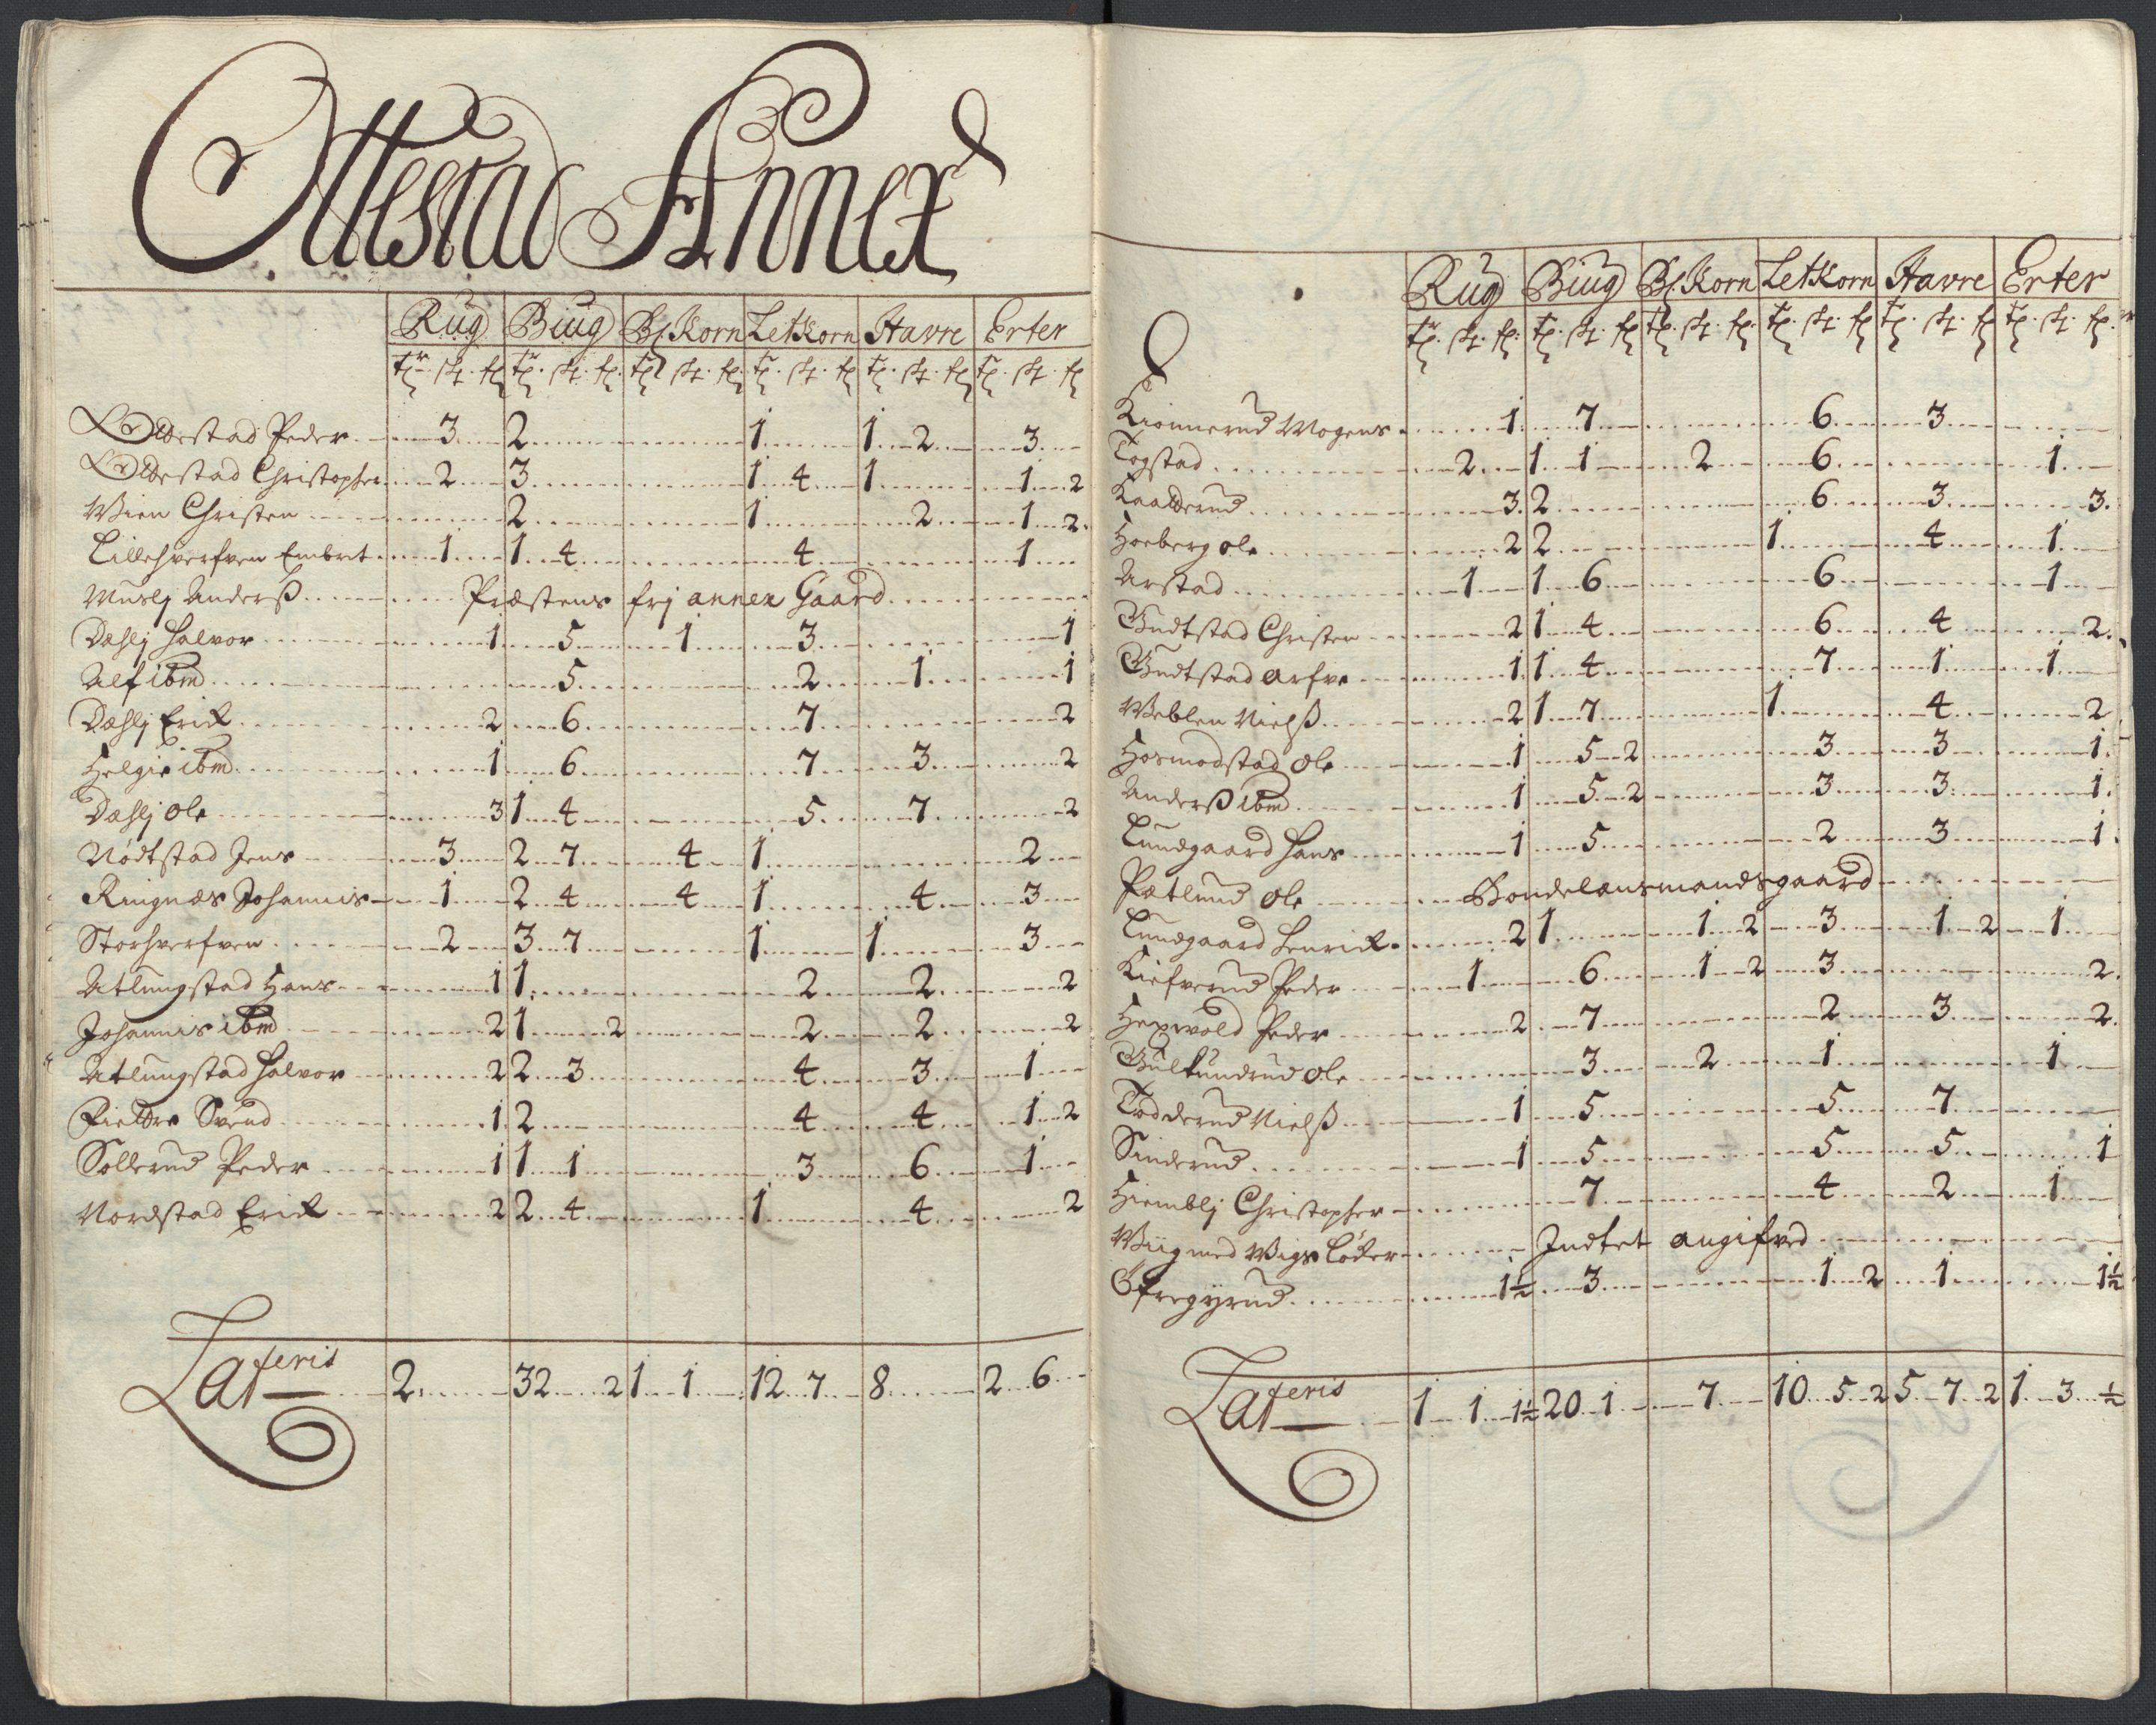 Ottestad Annex
Rug Biug Bl Korn LetKorn Havre Erter
Oldestad Peder 3 2 1 1 2 3
Oldestad Christopher 2 3 1 4 1 1 2
Wien Christen 2 1 2 1 2
Lillehverfven Embret 1 1 4 4 1
Muslj Anderß Præstens frj annex Gaard
Dæhlj Halvor 1 5 1 3 1
Alf ibm 5 2 1 1
Dæhlj Erich 2 6 7 2
Helgie ibm 1 6 7 3 2
Dæhlj Ole 3 1 4 5 7 2
Nödtstad Jens 3 2 7 4 1 2
Ringnæs Johannis 1 2 4 4 1 4 3
Storhverfven 2 3 7 1 1 3
Atlungstad Hans 1 1 2 2 2
Johannis ibm 2 1 2 2 2 2
Atlungstad Halvor 2 2 3 4 3 1
Fieldre Svend 1 2 4 4 1 2
Sollerud Peder 1 1 1 3 6 1
Nordstad Erich 2 2 4 1 4 2
Lateris 2 32 2 1 1 12 7 8 2 6
Rug Biug Bl Korn LetKorn Havre Erter
Kionnerud Mogens 1 7 6 3
Togstad 2 1 1 2 6 1
Kaalderud 3 2 6 3 3
Hoeberg Ole 2 2 1 4 1
Arstad 1 1 6 6 1
Gudtstad Christen 2 1 4 6 4 2
Gudtstad Arfve 1 1 4 7 1 1
Weblen Nielß 2 1 7 1 4 2
Hosmodstad Ole 1 5 2 3 3 1
Anderß ibm 1 5 2 3 3 1
Lundgaard Hans 1 5 2 3 1
Pætlund Ole Bondelænsmandsgaard
Lundgaard Henrich 2 1 1 2 3 1 2 1
Kiefverud Peder 1 6 1 2 3 2
Hexvold Peder 2 7 2 3 2
Gulkundrud Ole 3 2 1 1
Todderud Nielß 1 5 5 7
Sinderud 1 5 5 5 1
Hiemblj Christopher 7 4 2 1
Wiig med Wigs Löcker Indtet angifved
Öfregyrud 1½ 3 1 2 1 1½
Lateris 1 1 1½ 20 1 7 10 5 2 5 7 2 1 3 ½